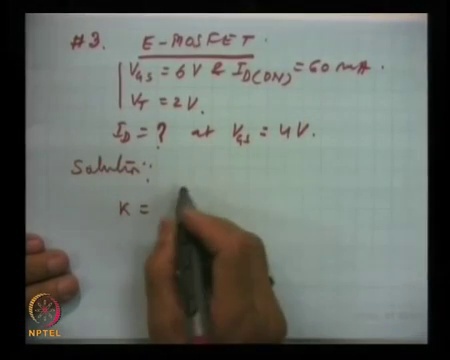 #3. E-MOSFET.
V_GS = 6V & I_D(ON) = 60 mA.
V_T = 2V.
I_D = ? at V_GS = 4V.
Solution:
K =
NPTEL